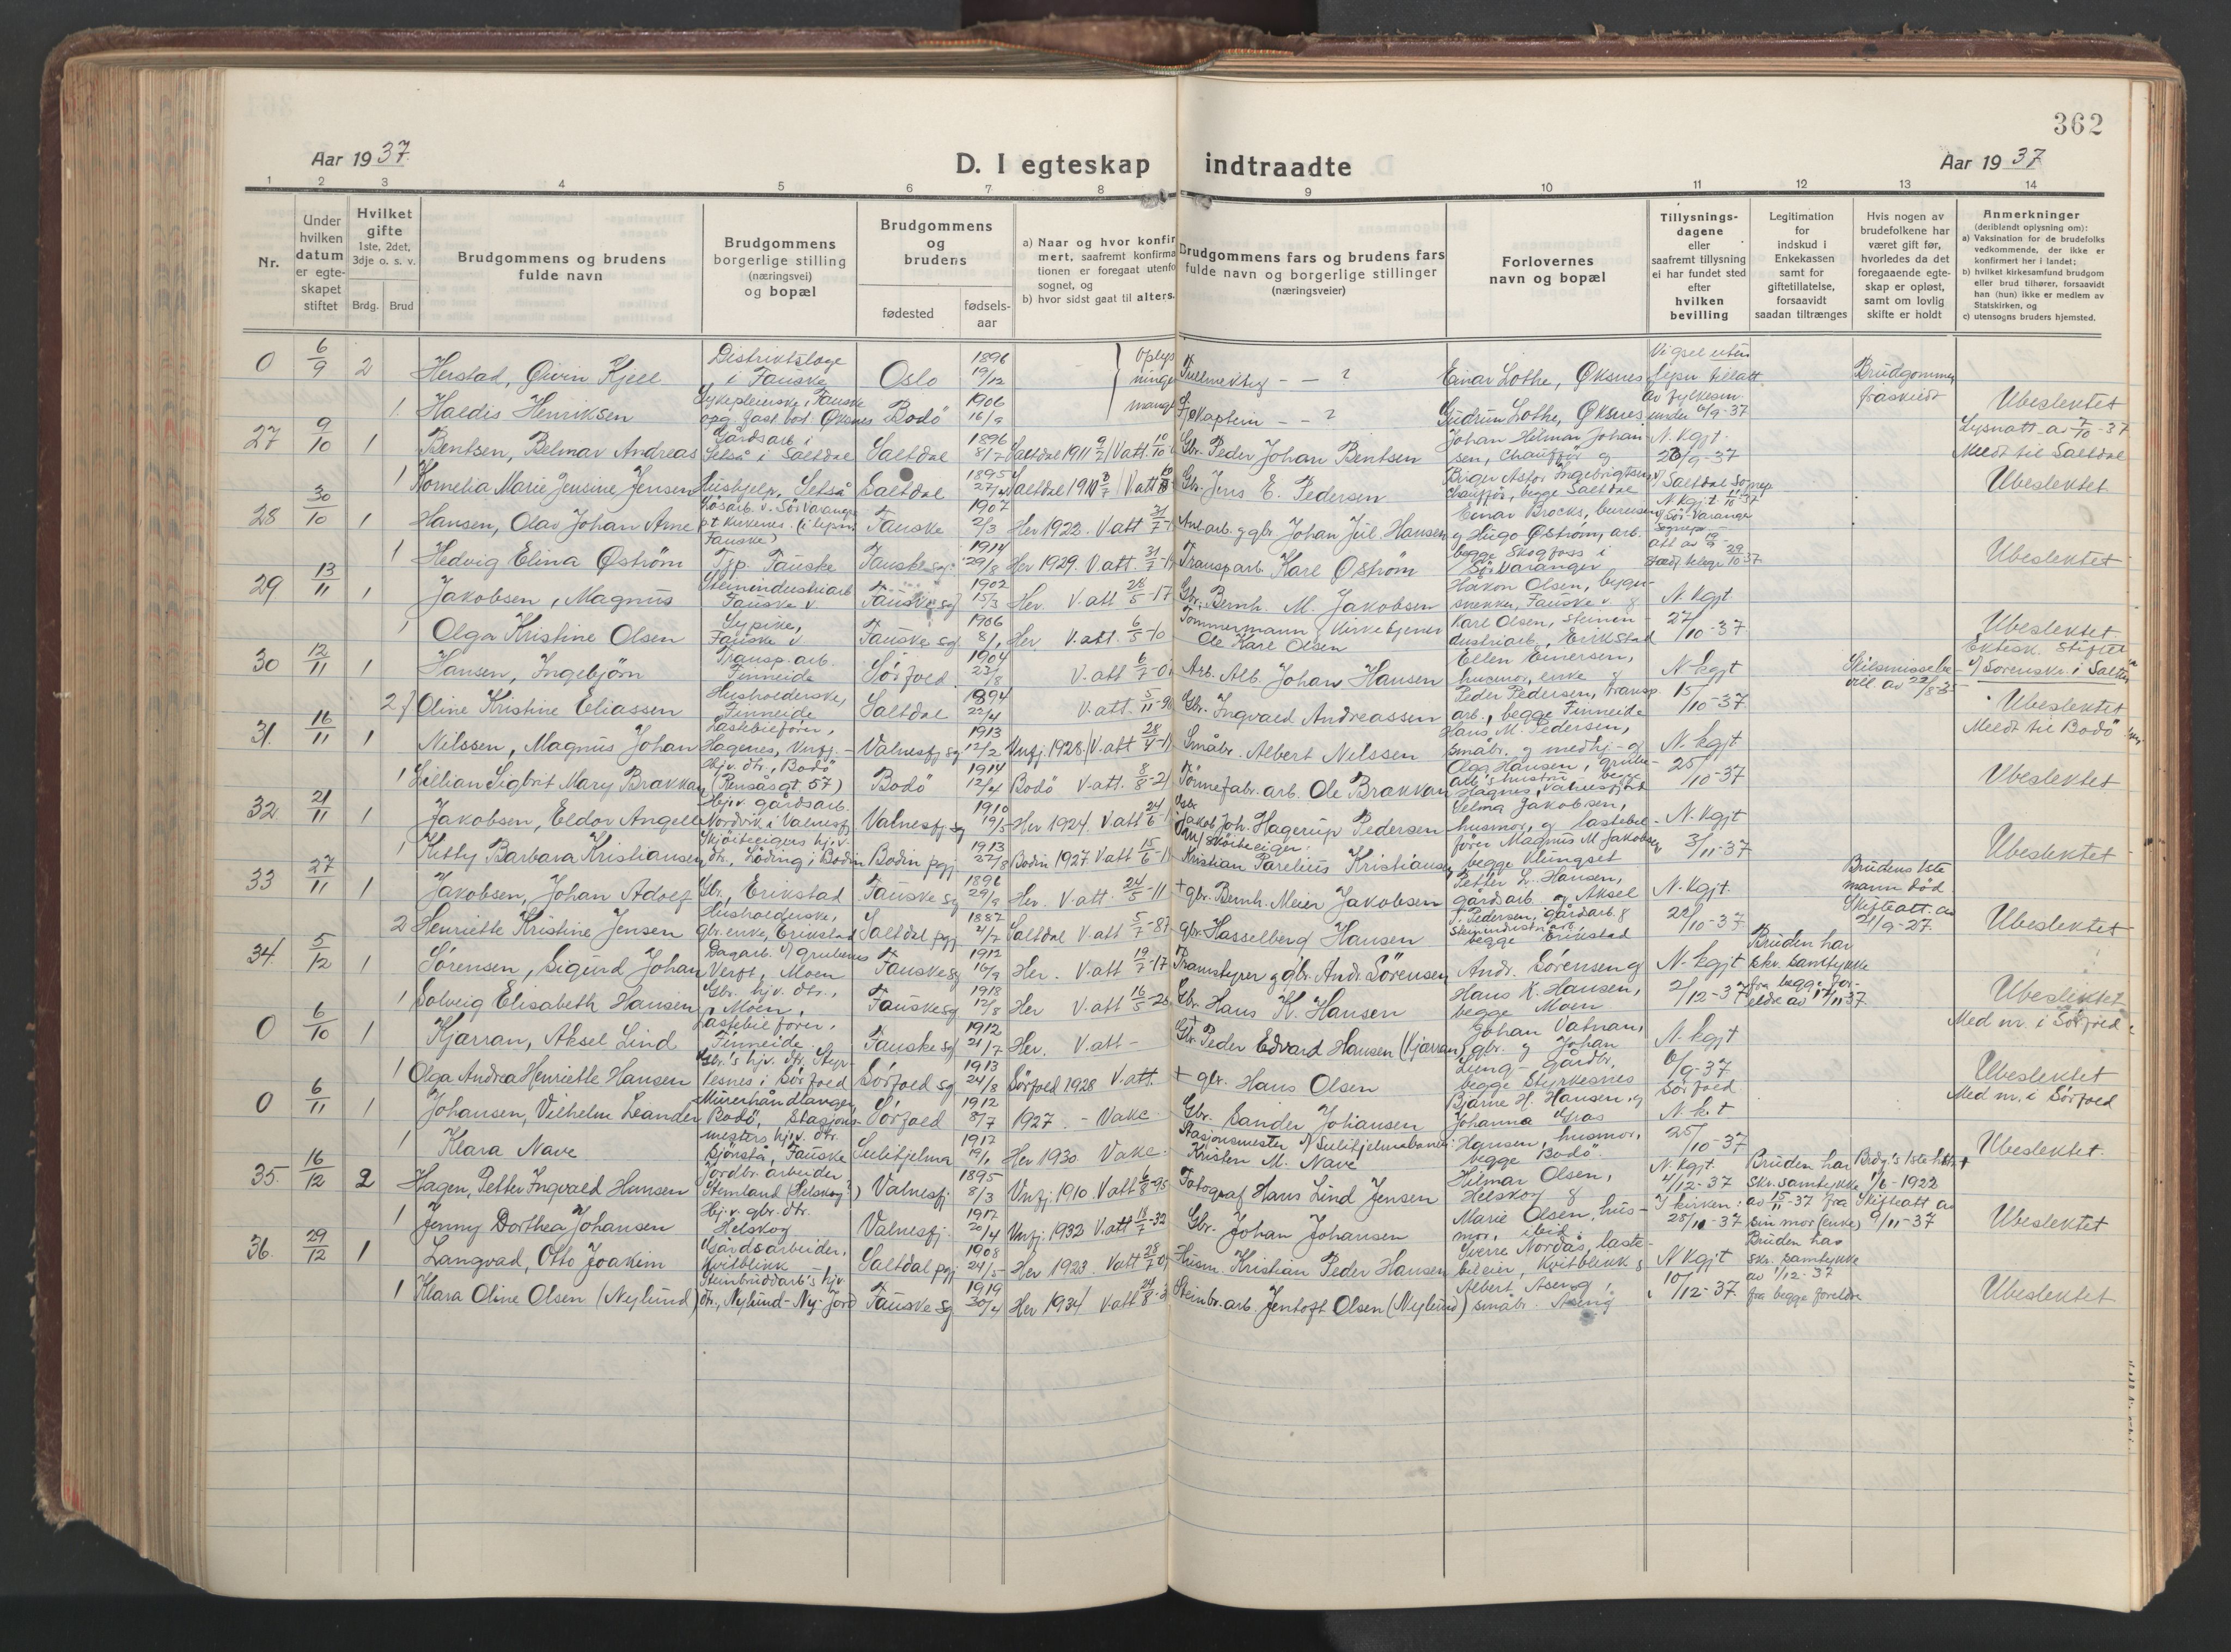 362
Aar 1937.
D. I egteskap indtraadte
Aar 1937
1 2 3 4 5 6 7 8 9 10 11 12 13 14
Nr.
Under hvilken datum er egteskapet stiftet
Hvilket gifte
1ste, 2det, 3dje o. s. v.
Brdg. Brud
Brudgommens og brudens fulde navn
Brudgommens borgerlige stilling (næringsvei) og bopæl
Brudgommens og brudens
fødested
fødsels-aar
a) Naar og hvor konfir
mert, saafremt konfirma
tionen er foregaat utenfo
sognet, og
b) hvor sidst gaat til alters.
Brudgommens fars og brudens fars fulde navn og borgerlige stillinger (næringsveier)
Forlovernes navn og bopæl
Tillysnings-dagene eller saafremt tillysning ei har fundet sted efter hvilken bevilling
Legitimation for indskud i Enkekassen samt for giftetillatelse, forsaavidt saadan tiltrænges
Hvis nogen av brudefolkene har været gift før, hvorledes da det foregaaende egteskap er opløst, samt om lovlig skifte er holdt
Anmerkninger
(deriblandt oplysning om):
a) Vaksination for de brudefolks vedkommende, der ikke er konfirmert her i landet;
b) hvilket kirkesamfund brudgom eller brud tilhører, forsaavidt han (hun) ikke er medlem av Statskirken, og
c) utensogns bruders hjemsted.
0 6/9 2 Herstad, Øivin Kjell Distriktslæge i Fauske Oslo 1896 19/12 Fullmektig - - ? Einar Lothe, Øksnes Vigsel uten lysn tillatt Brudgommen fraskildt
1 Haldis Henriksen Sykepleierske, Fauske Bodö 1906 16/9 - - ? Gudrun Lothe, Øksnes under 6/9-37 Ubeslektet
27 9/10 1 Bentsen, Belmar Andreas Gårdsarb i Setså i Saltdal Saltdal 1896 8/7 Saltdal 1911 V.att Gbr. Peder Johan Bentsen Johan Hilmar Johansen, chauffør og N. kgjt. Meldt til Saltdal
1 Kornelia Marie Jensine Jensen Hushjelp, Setså Saltdal 1895 Saltdal Gbr. Jens E. Pedersen Birger Astor Ingebrigtsen chauffør, begge Saltdal Ubeslektet
28 30/10 1 Hansen, Olav Johan Arne Fauske 1907 2/3 Her 1922. V.att 31/7 Anl.arb. g gbr Johan Jul Hansen Einar Brocks, g Hugo Østrøm, arb. N. kgjt. Sør-Varanger
1 Hedvig Elina Øström Tjp. Fauske Fauske sg. 1914 29/8 Her 1929. V.att. 31/7 Transp arb. Karl Öström begge Skogfoss i Sørvaranger Ubeslektet
29 13/11 1 Jakobsen, Magnus Steinindustriarb Fauske v Fauske sg 1902 15/3 Her. V.att 28/5-17 Gbr. Bernh. M. Jakobsen Håkon Olsen, Fauske v. g N. kgjt
1 Olga Kristine Olsen Sypike, Fauske v Fauske sg. 1906 8/1 Her V.att. 6/5-10 Tømmermann g kirketjener Ole Karl Olsen Karl Olsen, Steinindustriarb., Erikstad 27/10-37 Ubeslektet.
30 12/11 1 Hansen, Ingebjörn Transp. arb. Finneide Sörfold 1904 V.att 6/7 Arb. Alb. Johan Hansen Ellen Einersen, husmor, enke g N-kgjt Skilsmissebevill. av 22/8-35 Ektesk. stiftet v/ Sorenskr. i Salten
2 Oline Kristine Eliassen Husholderske, Finneide Saltdal 1894 22/4 V.att. 5/11 Gbr. Ingvald Andreassen Peder Pedersen, transp. arb., begge Finneide 15/10-37 Ubeslektet
31. 16/11 1 Nilssen, Magnus Johan Lastebilfører, Hagenes, Vnfj. Valnesfj sg 1913 12/2 Vnfj. 1928. V.att 28/4 Småbr. Albert Nilssen Hans M. Pedersen, småbr. g medhj. g N-kgjt Meldt til Bodö
1 Lillian Sigbrit Mary Brakkan Hjv. dtr., Bodö (Rensåsgt 57) Bodö 1914 12/4 Bodö V.att. 8/8-21 Tönnefabr. arb. Ole Brakkan Olga Hansen, grubearb's hustru - begge Hagnes, Valnesfjord 25/10-37 Ubeslektet
32 21/11 1 Jakobsen, Eldor Angell Hjv. gårdsarb. Nordvik i Valnesfj. Valnesfj sg 1910 19/5 Her 1924. V.att 24/6 Jakob Joh. Hagerup Pedersen Selma Jakobsen, husmor, og lastebil- N. kgjt
1 Kitty Barbara Kristiansen Skjöiteeigers hjv. dtr., Löding i Bodin Bodin pgj. 1913 27/8 Bodin 1927 V.att 15/6 Sköiteeiger: Kristian Parelius Kristiansen fører Magnus M Jakobsen begge Klungset 3/11-37 Ubeslektet
33 27/11 1 Jakobsen, Johan Adolf Gbr, Erikstad Fauske sg 1896 29/9 Her. V.att 24/5-11 + gbr. Bernh. Meier Jakobsen Petter L. Hansen, gårdsarb. og Aksel N. kgjt. Brudens 1ste mann död.
2 Henriette Kristine Jensen Husholderske, gbr. enke, Erikstad Saltdal pgj 1887 2/7 Saltdal V.att 5/7-87 gbr. Hasselberg Hansen J. Pedersen, gårdsarb. g steinindustriarb. begge Erikstad 22/10-37 Skifteatt. av 21/9-27. Ubeslektet
34. 5/12 1 Sörensen, Sigurd Johan Dagarb. v/ grubenes Verft, Moen Fauske sg 1912 16/9 Her. V.att 19/7-17 Pramstyrer g gbr. Andr. Sörensen Andr. Sörensen g N. kgjt Bruden har skr. samtykke
1 Solveig Elisabeth Hansen Gbr. hjv. dtr., Moen, Fauske sg 1918 12/8 Her V.att 16/5 Gbr. Hans K. Hansen Hans K. Hansen, begge Moen 2/12-37 fra begge foreldre av 17/11 37. Ubeslektet
0 6/10 1 Kjærran, Aksel Lind Lastebilfører, Finneide. Fauske sg 1912 21/7 Her. V.att - Gbr. Peder Edvard Hansen (Kjærran) Johan Vatnan, gbr. g Johan N. kgjt Med nr. i Sörfold
1 Olga Andrea Henriette Hansen Gbr.'s hjv. dtr. Styrkesnes i Sörfold Sörfold sg 1913 24/8 Sörfold 1928 V.att. + gbr. Hans Olsen Ljung - gårdbr, begge Styrkesnes 6/9-37 Sörfold Ubeslektet
0 6/11 1 Johansen, Vilhelm Leander Murerhåndlanger Bodö, Sörfold 1912 8/7 1927. - Vakc. Gbr. Sander Johansen Bjarne H. Hansen, g Johanna N. k. t Med nr. i Sörfold
1 Klara Nave Stasjonsmesters hjv. dtr. Sjönstå, Fauske Sulitjelma 1912 19/1 Her 1930 Vakc. Stasjonsmester v/ Sulitjelmabanen Kristen M. Nave Hansen, husmor, begge Bodö 25/10-37 Ubeslektet.
35. 16/12 2 Hagen, Petter Ingvald Hansen Jordbr. arbeider Stemland (Helskog) Valnesfj. 1895 8/3 Vnfj. 1910. V.att 6/8-95 Fotograf Hans Lind Jensen Hilmar Olsen, Helskog g N. kgjt. 4/12-37 Bruden har skr. samtykke Brdg.'s 1ste hustr + 1/6-1922
1 Jenny Dorthea Johansen Hj. v. gbr. dtr. Helskog Valnesfj. 1917 20/4 Vnfj. 1932. V.att 18/7-32 Gbr. Johan Johansen Marie Olsen, husmor, ibid. I kirken: 28/11-37 av 15/11-37 fra sin mor (enke) Skifteatt av 9/11-37 Ubeslektet
36. 29/12 1 Langvad, Otto Joakim Gårdsarbeider, Kvitblikk Saltdal pgj 1908 24/5 Her 1923. V.att 28/7 Husm. Kristian Peder Hansen Sverre Nordås, lastebileier, Kvitblikk g N kgjt Bruden har skr. samtykke av 1/12-37
1 Klara Oline Olsen (Nylund) Steinbruddarb's hjv dtr., Nylund-Ny-Jord Fauske sg. 1919 30/4 Her 1934 V.att 24/8 Steinbr. arb. Jentoft Olsen (Nylund) Albert Aseng, småbr. Aseng 10/12-37 fra begge foreldre Ubeslektet